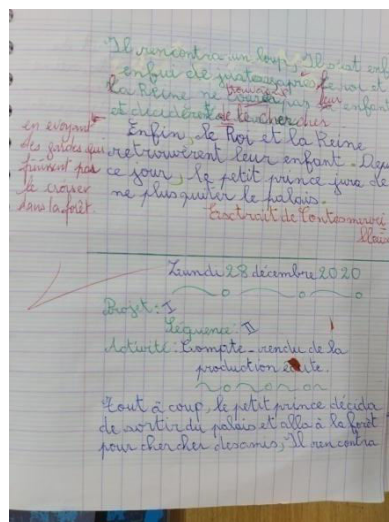 Il rencontra un loup, Il s'est enfui
le roi et
la Reine ne pas leur enfant
et décidèrent de le chercher
en evoyant
des gardes qui
finirent par
le
dans la forêt.
Enfin, le Roi et la Reine
retrouvèrent leur enfant. Depuis
ce jour, le petit prince jura de
ne plus quiter le palais.
Extrait de Contes
Lundi 28 décembre 2020
Projet: I
Séquence: II
Activité: Compte-rendu de la
production écrite.
Tout à coup, le petit prince décida
de sortir du palais et alla à la forêt
pour chercher des amis, Il rencontra